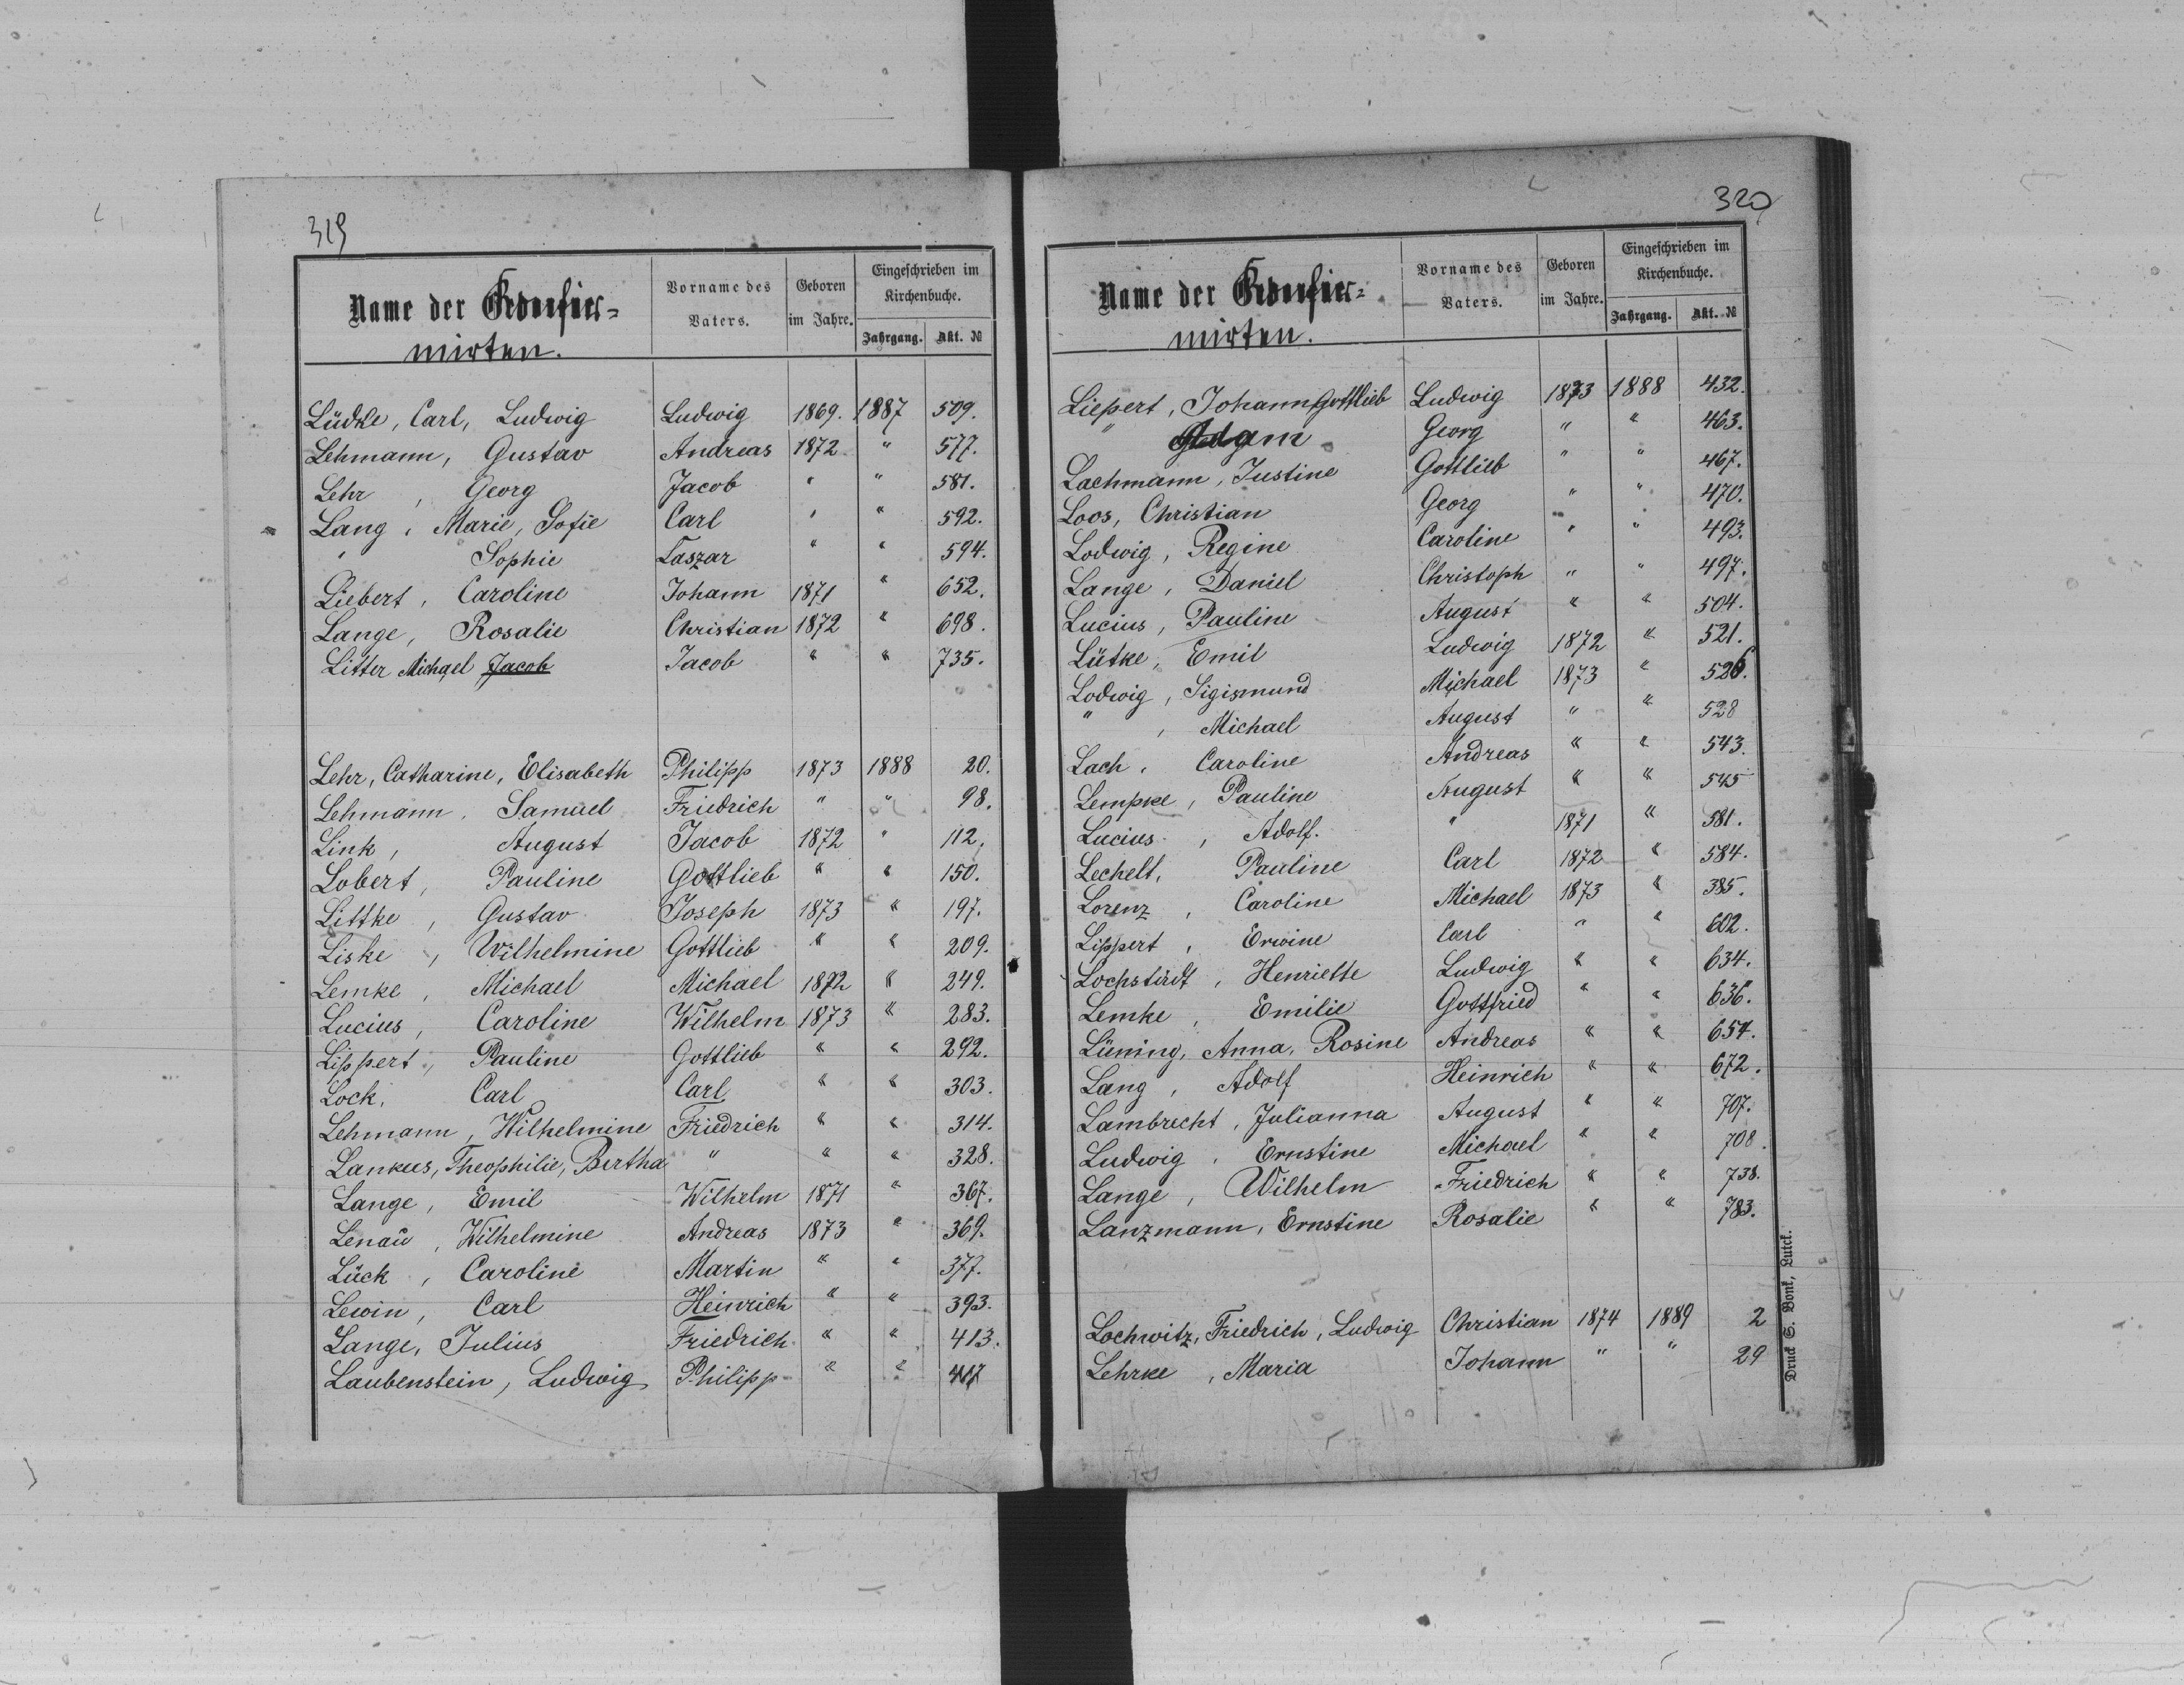 319
Name der Konfir-
mirten.
Vorname des Vaters.
Geboren im Jahre.
Eingeschrieben im Kirchenbuche.
Jahrgang. Akt. №
Lüdke, Carl, Ludwig Ludwig 1869. 1887 509.
Lehmann, Gustav Andreas 1872 " 577.
Lehr, Georg Jacob " " 581.
Lang, Marie, Sofie Carl " " 592.
" Sophie Laszar " " 594.
Liebert, Caroline Johann 1871 " 652.
Lange, Rosalie Christian 1872 " 698.
Litter Michael Jacob Jacob " " 735.
Lehr, Catharine, Elisabeth Philipp 1873 1888 20.
Lehmann, Samuel Friedrich " " 98.
Link, August Jacob 1872 " 112.
Lobert, Pauline Gottlieb " " 150.
Littke, Gustav Joseph 1873 " 197.
Liske, Wilhelmine Gottlieb " " 209.
Lemke, Michael Michael 1872 " 249.
Lucius, Caroline Wilhelm 1873 " 283.
Lippert, Pauline Gottlieb " " 292.
Lock, Carl Carl " " 303.
Lehmann, Wilhelmine Friedrich " " 314.
Lankus, Theophilie, Bertha " " " 328.
Lange, Emil Wilhelm 1871 " 367.
Lenau, Wilhelmine Andreas 1873 " 369.
Lück, Caroline Martin " " 377.
Lewin, Carl Heinrich " " 393.
Lange, Julius Friedrich " " 413.
Laubenstein, Ludwig Philipp " " 417
320
Name der Konfir-
mirten.
Vorname des Vaters.
Geboren im Jahre.
Eingeschrieben im Kirchenbuche.
Jahrgang. Akt. №
Liepert, Johann Gottlieb Ludwig 1873 1888 432.
" Adam Georg " " 463.
Lachmann, Justine Gottlieb " " 467.
Loos, Christian Georg " " 470.
Lodwig, Regine Caroline " " 493.
Lange, Daniel Christoph " " 497.
Lucius, Pauline August " " 504.
Lütke, Emil Ludwig 1872 " 521.
Lodwig, Sigismund Michael 1873 " 526.
" , Michael August " " 528
Lach, Caroline Andreas " " 543.
Lempke, Pauline August " " 545
Lucius, Adolf. " 1871 " 581.
Lechelt, Pauline Carl 1872 " 584.
Lorenz, Caroline Michael 1873 " 385.
Lippert, Erwine Carl " " 602.
Lochstädt, Henriette Ludwig " " 634.
Lemke, Emilie Gottfried " " 636.
Lüning, Anna, Rosine Andreas " " 654.
Lang, Adolf Heinrich " " 672.
Lambrecht, Julianna August " " 707.
Ludwig, Ernstine Michael " " 708.
Lange, Wilhelm Friedrich " " 738.
Lanzmann, Ernstine Rosalie " " 783.
Lochwitz, Friedrich, Ludwig Christian 1874 1889 2
Lehrke, Maria Johann " " 29
Druck S. Bonk, Lutck.